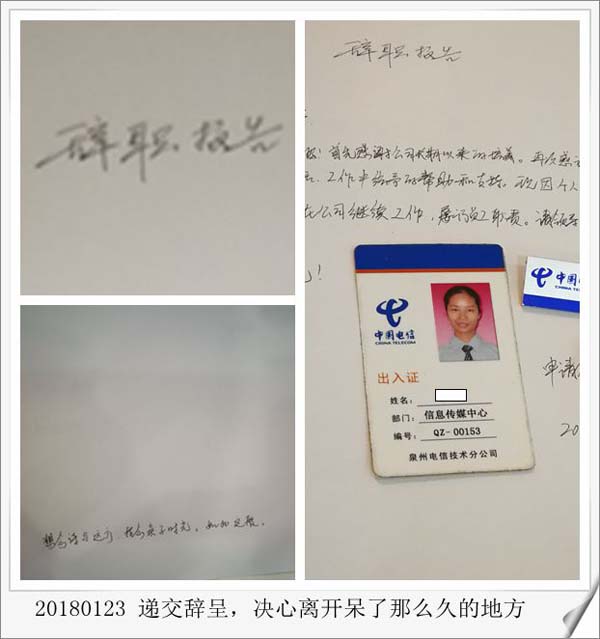 辞职报告
辞职报告
首先感谢公司长期以来的培养。再次感
、工作中给予的帮助和支持。现因个人
在公司继续工作，履行员工职责。请领导
!
中国电信
CHINA TELECOM
中国电
CHINA TEL
出入证
姓名:
部门: 信息传媒中心
编号: QZ-00153
泉州电信技术分公司
申请
20
诗与远方，亲子时光，
20180123 递交辞呈，决心离开呆了那么久的地方